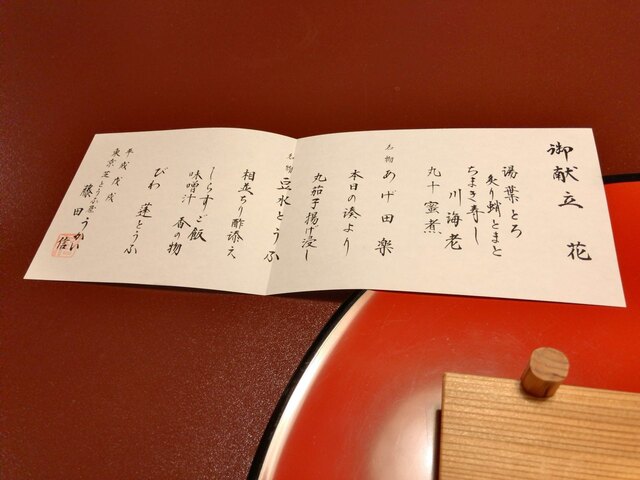 御献立 花
湯葉とろ
炙り蛸とまと
ちまき寿し
川海老
九十蜜煮
名物 あげ田楽
本日の湊より
丸茄子揚げ浸し
名物 豆水とうふ
相並ちり酢添え
しらすご飯
味噌汁 香の物
びわ 蓮とうふ
平成戊戌
東京芝とうふ屋うかい
藤田
信